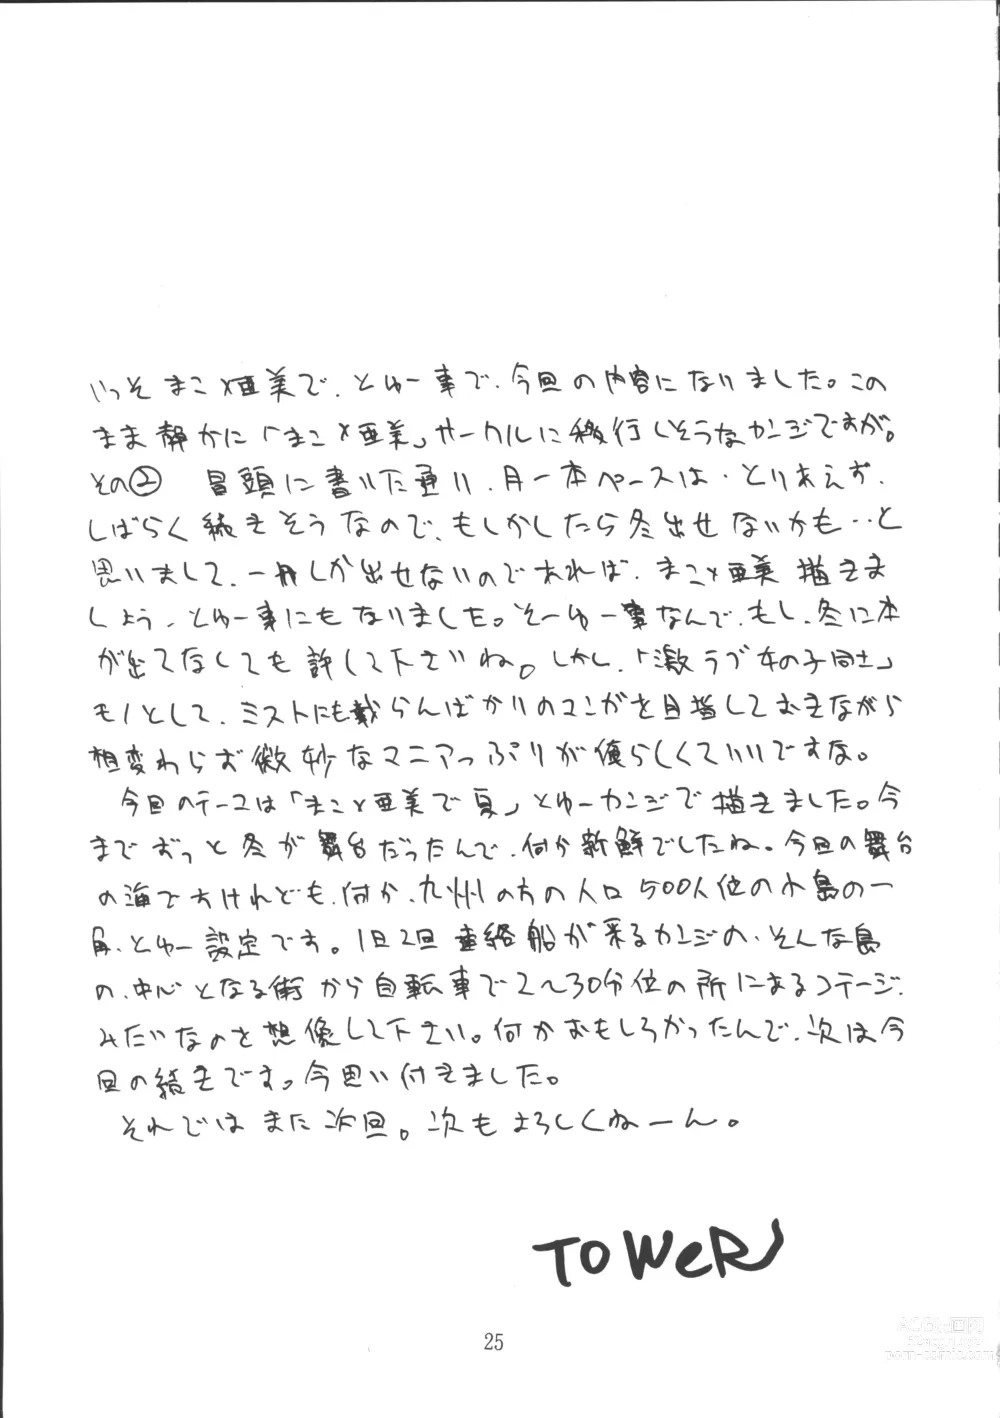 いっそまこ×亜美で、とゆー事で、今回の内容になりました。この
まま静かに「まこ×亜美」サークルに移行しそうなカンジですが。
その② 冒頭に書いた通り、月一本ペースは、とりあえず、
しばらく続きそうなので、もしかしたら冬出せないかも…と
思いまして、一冊しか出せないのであれば、まこ×亜美描きま
しょう、とゆー事にもなりました。そーゆー事なんで、もし、冬に本
が出てなくても許して下さいね。しかし、「激ラブ女の子同士」
モノとして、ミストにも載らんばかりのマンガを目指しておきながら
相変わらず微妙なマニアっぷりが僕らしくていいですな。
今回のテーマは「まこと亜美で夏」とゆーカンジで描きました。今
までずっと冬が舞台だったんで、何か新鮮でしたね。今回の舞台
の海ですけれども、何か、九州の方の人口500人位の小島の一
角、とゆー設定です。1日2回連絡船が来るカンジの、そんな島
の、中心となる街から自転車で2〜30分位の所にあるコテージ、
みたいなのを想像して下さい。何かおもしろかったんで、次は今
回の続きです。今思い付きました。
それではまた次回。次もよろしくねーん。
TOWeR
25